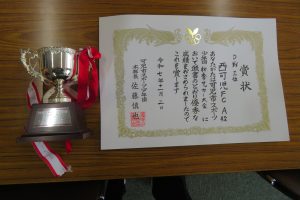 賞状
三位
西可児FCA殿
あなたがたは可児市スポーツ
少年団秋季サッカー大会に
おいて頭書のとおり優秀な
成績をおさめられましたので
これを賞します
令和七年十一月二日
可児市スポーツ少年団
本部長 佐藤慎也